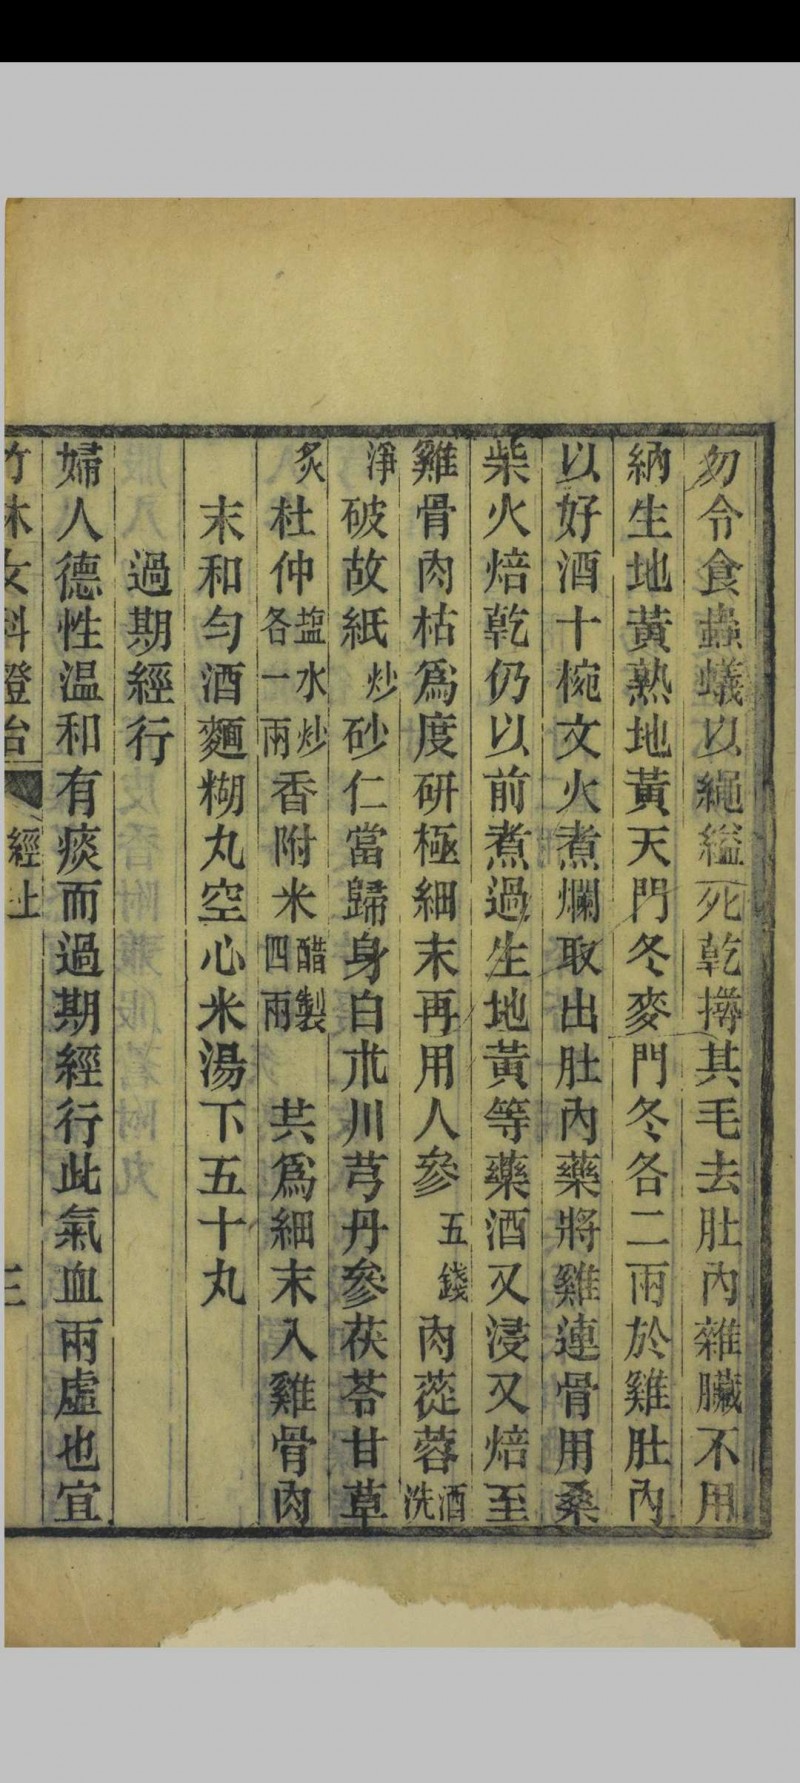 勿令食蟲蟻以繩縊死乾撏其毛去肚內雜臟不用
納生地黃熟地黃天門冬麥門冬各二兩於雞肚內
以好酒十椀文火煮爛取出肚內藥將雞連骨用桑
柴火焙乾仍以前煮過生地黃等藥酒又浸又焙至
雞骨肉枯爲度研極細末再用人參五錢肉蓯蓉酒洗
淨破故紙炒砂仁當歸身白朮川芎丹參茯苓甘草
炙杜仲塩水炒各一兩香附米醋製四兩 共爲細末入雞骨肉
末和匀酒麵糊丸空心米湯下五十丸
過期經行
婦人德性温和有痰而過期經行此氣血兩虛也宜
竹林女科證治 經上 三